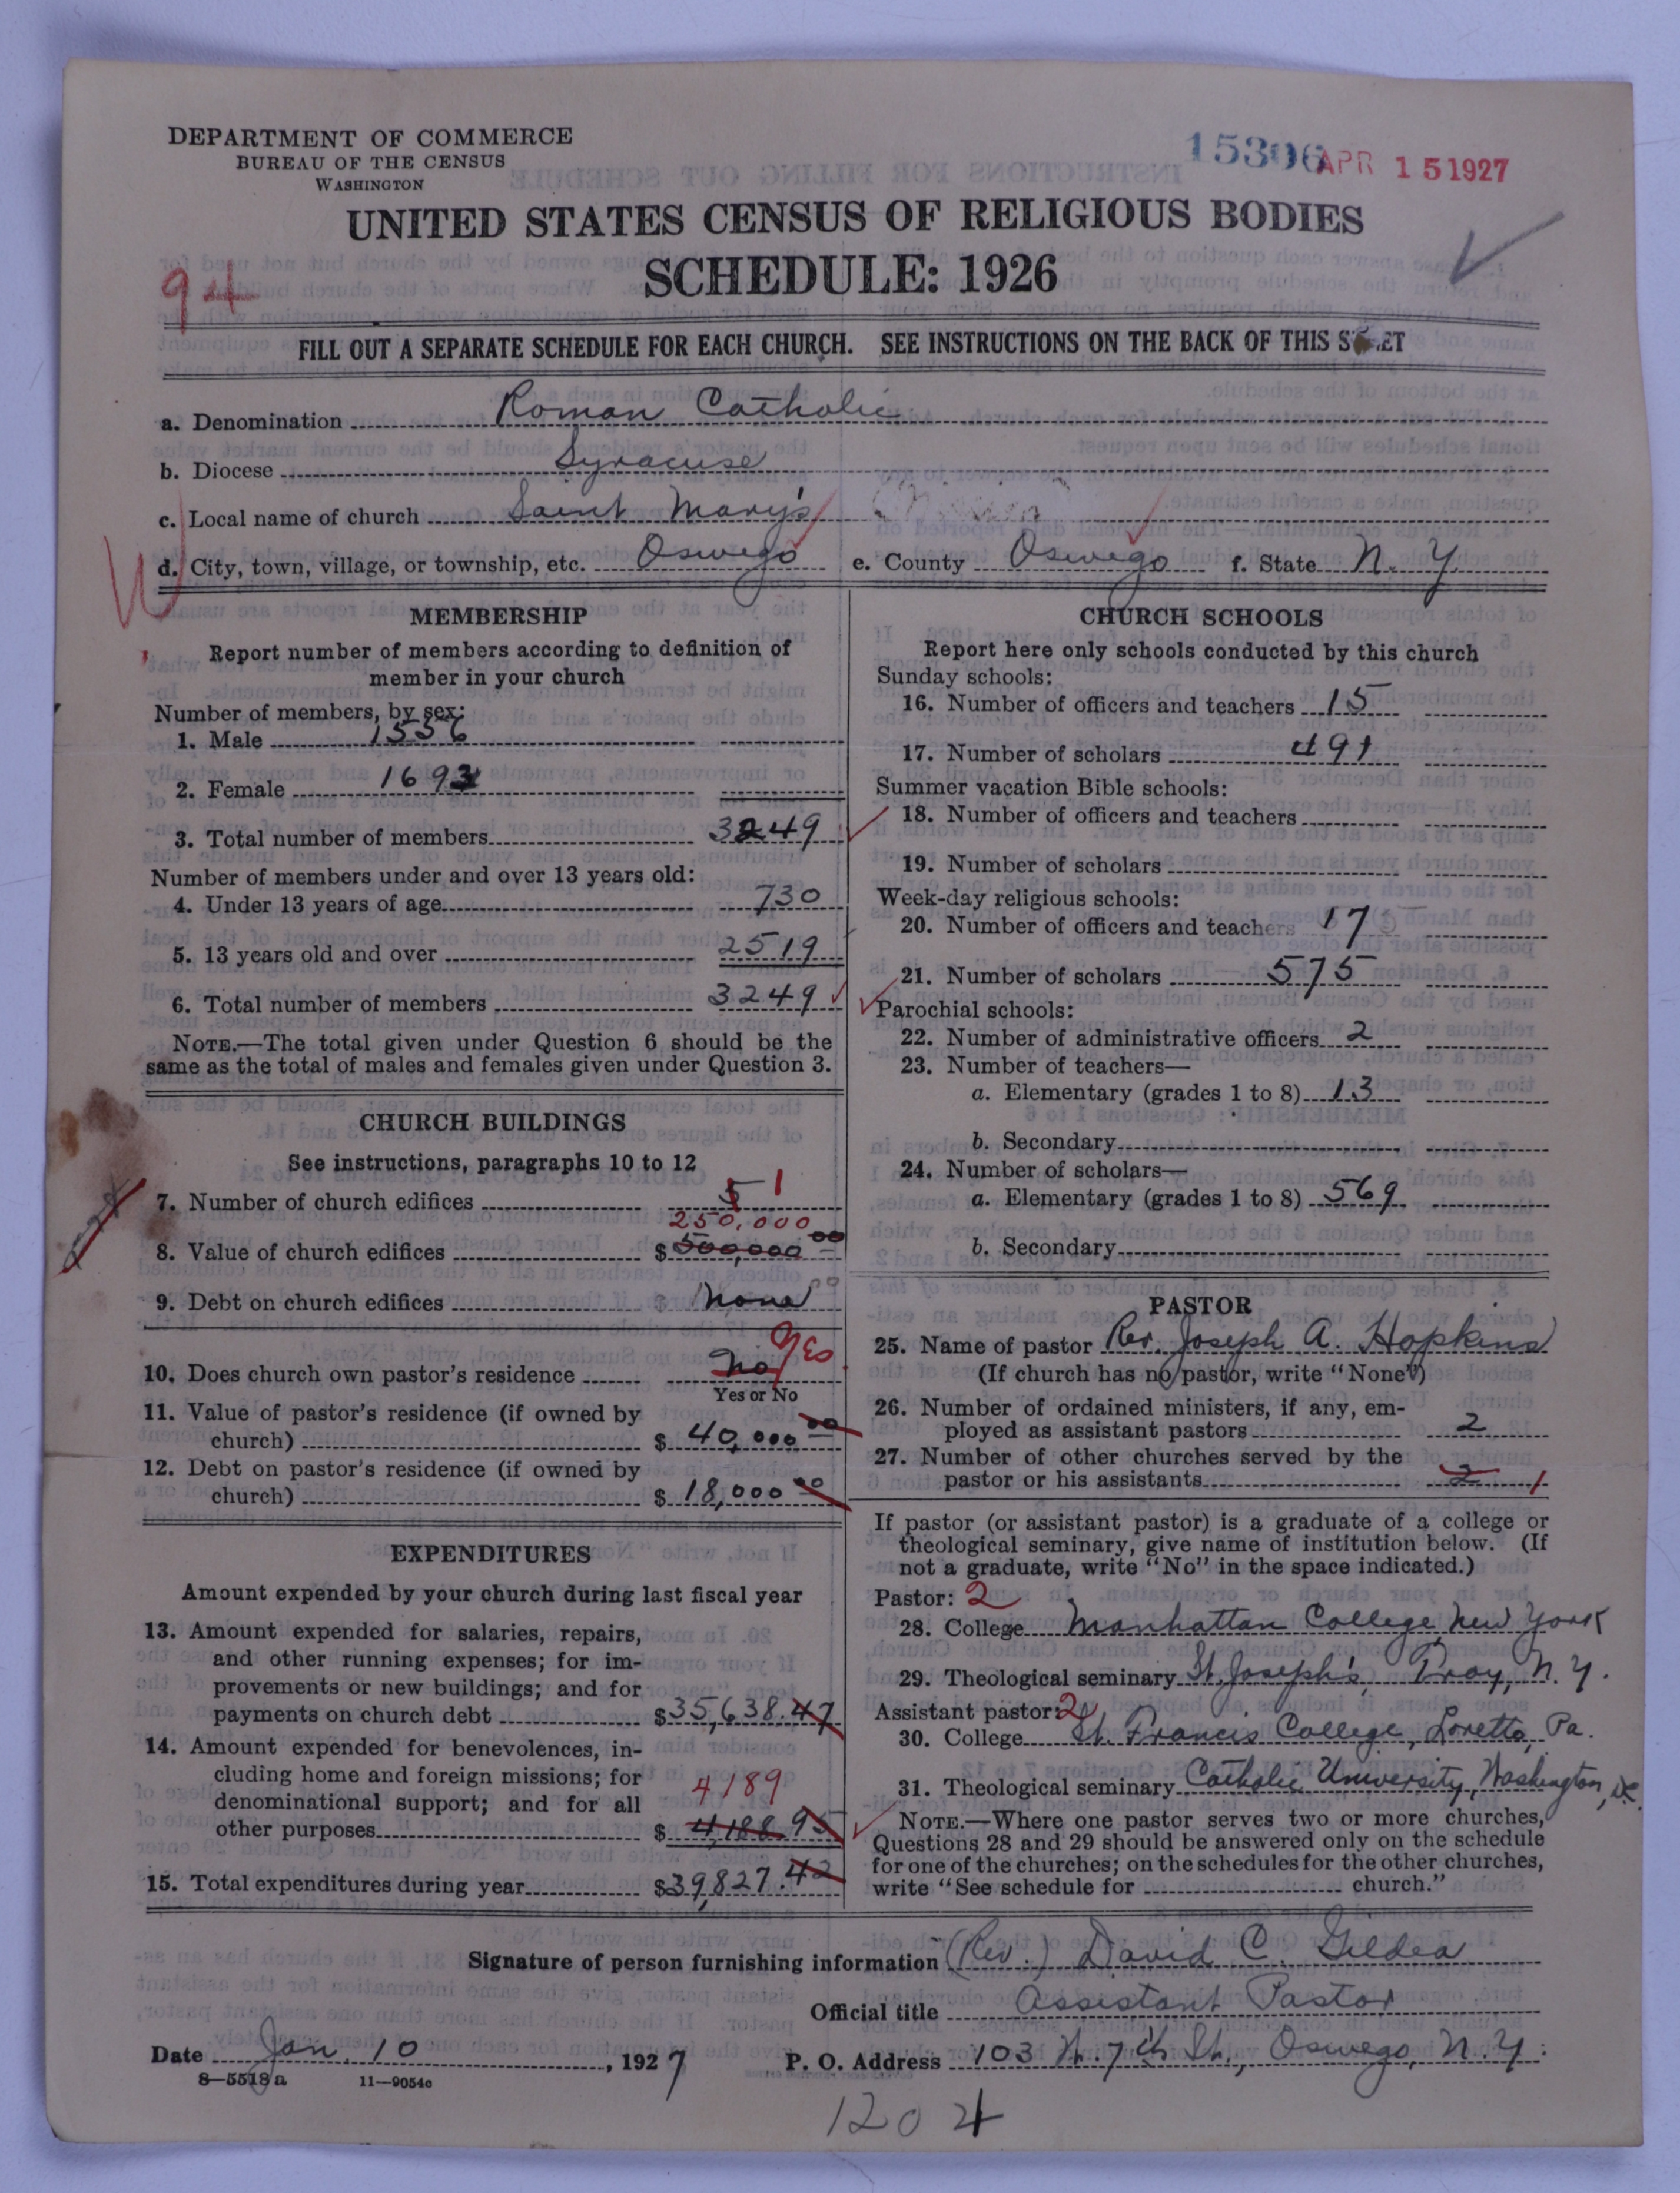 DEPARTMENT OF COMMERCE
BUREAU OF THE CENSUS
WASHINGTON
15306 APR 15 1927
UNITED STATES CENSUS OF RELIGIOUS BODIES
SCHEDULE: 1926
94
FILL OUT A SEPARATE SCHEDULE FOR EACH CHURCH. SEE INSTRUCTIONS ON THE BACK OF THIS SHEET
a. Denomination Roman Catholic
b. Diocese Syracuse
c. Local name of church Saint Mary's
d. City, town, village, or township, etc. Oswego e. County Oswego f. State N. Y.
MEMBERSHIP
Report number of members according to definition of
member in your church
Number of members, by sex:
1. Male 1556
2. Female 1693
3. Total number of members 3249
Number of members under and over 13 years old:
4. Under 13 years of age 730
5. 13 years old and over 2519
6. Total number of members 3249
NOTE.—The total given under Question 6 should be the
same as the total of males and females given under Question 3.
CHURCH BUILDINGS
See instructions, paragraphs 10 to 12
7. Number of church edifices 5 1
250,000
8. Value of church edifices $ 500,000 00
9. Debt on church edifices $ None
10. Does church own pastor's residence No Yes
Yes or No
11. Value of pastor's residence (if owned by
church) $ 40,000 00
12. Debt on pastor's residence (if owned by
church) $ 18,000 00
EXPENDITURES
Amount expended by your church during last fiscal year
13. Amount expended for salaries, repairs,
and other running expenses; for im-
provements or new buildings; and for
payments on church debt $35,638.47
14. Amount expended for benevolences, in-
cluding home and foreign missions; for
denominational support; and for all 4189
other purposes $ 4,188.95
15. Total expenditures during year $39,827.42
CHURCH SCHOOLS
Report here only schools conducted by this church
Sunday schools:
16. Number of officers and teachers 15
17. Number of scholars 491
Summer vacation Bible schools:
18. Number of officers and teachers
19. Number of scholars
Week-day religious schools:
20. Number of officers and teachers 17
21. Number of scholars 575
Parochial schools:
22. Number of administrative officers 2
23. Number of teachers—
a. Elementary (grades 1 to 8) 13
b. Secondary
24. Number of scholars—
a. Elementary (grades 1 to 8) 569
b. Secondary
PASTOR
25. Name of pastor Rev. Joseph A. Hopkins
(If church has no pastor, write "None")
26. Number of ordained ministers, if any, em-
ployed as assistant pastors 2
27. Number of other churches served by the
pastor or his assistants 2 1
If pastor (or assistant pastor) is a graduate of a college or
theological seminary, give name of institution below. (If
not a graduate, write "No" in the space indicated.)
Pastor: 2
28. College Manhattan College, New York
29. Theological seminary St. Joseph's, Troy, N. Y.
Assistant pastor: 2
30. College St. Francis College, Loretto, Pa.
31. Theological seminary Catholic University, Washington, D.C.
NOTE.—Where one pastor serves two or more churches,
Questions 28 and 29 should be answered only on the schedule
for one of the churches; on the schedules for the other churches,
write "See schedule for church."
Signature of person furnishing information (Rev.) David C. Gildea
Official title Assistant Pastor
Date Jan. 10, 1927 P. O. Address 103 W. 7th St., Oswego, N.Y.
8—5518a 11—9054c
1204